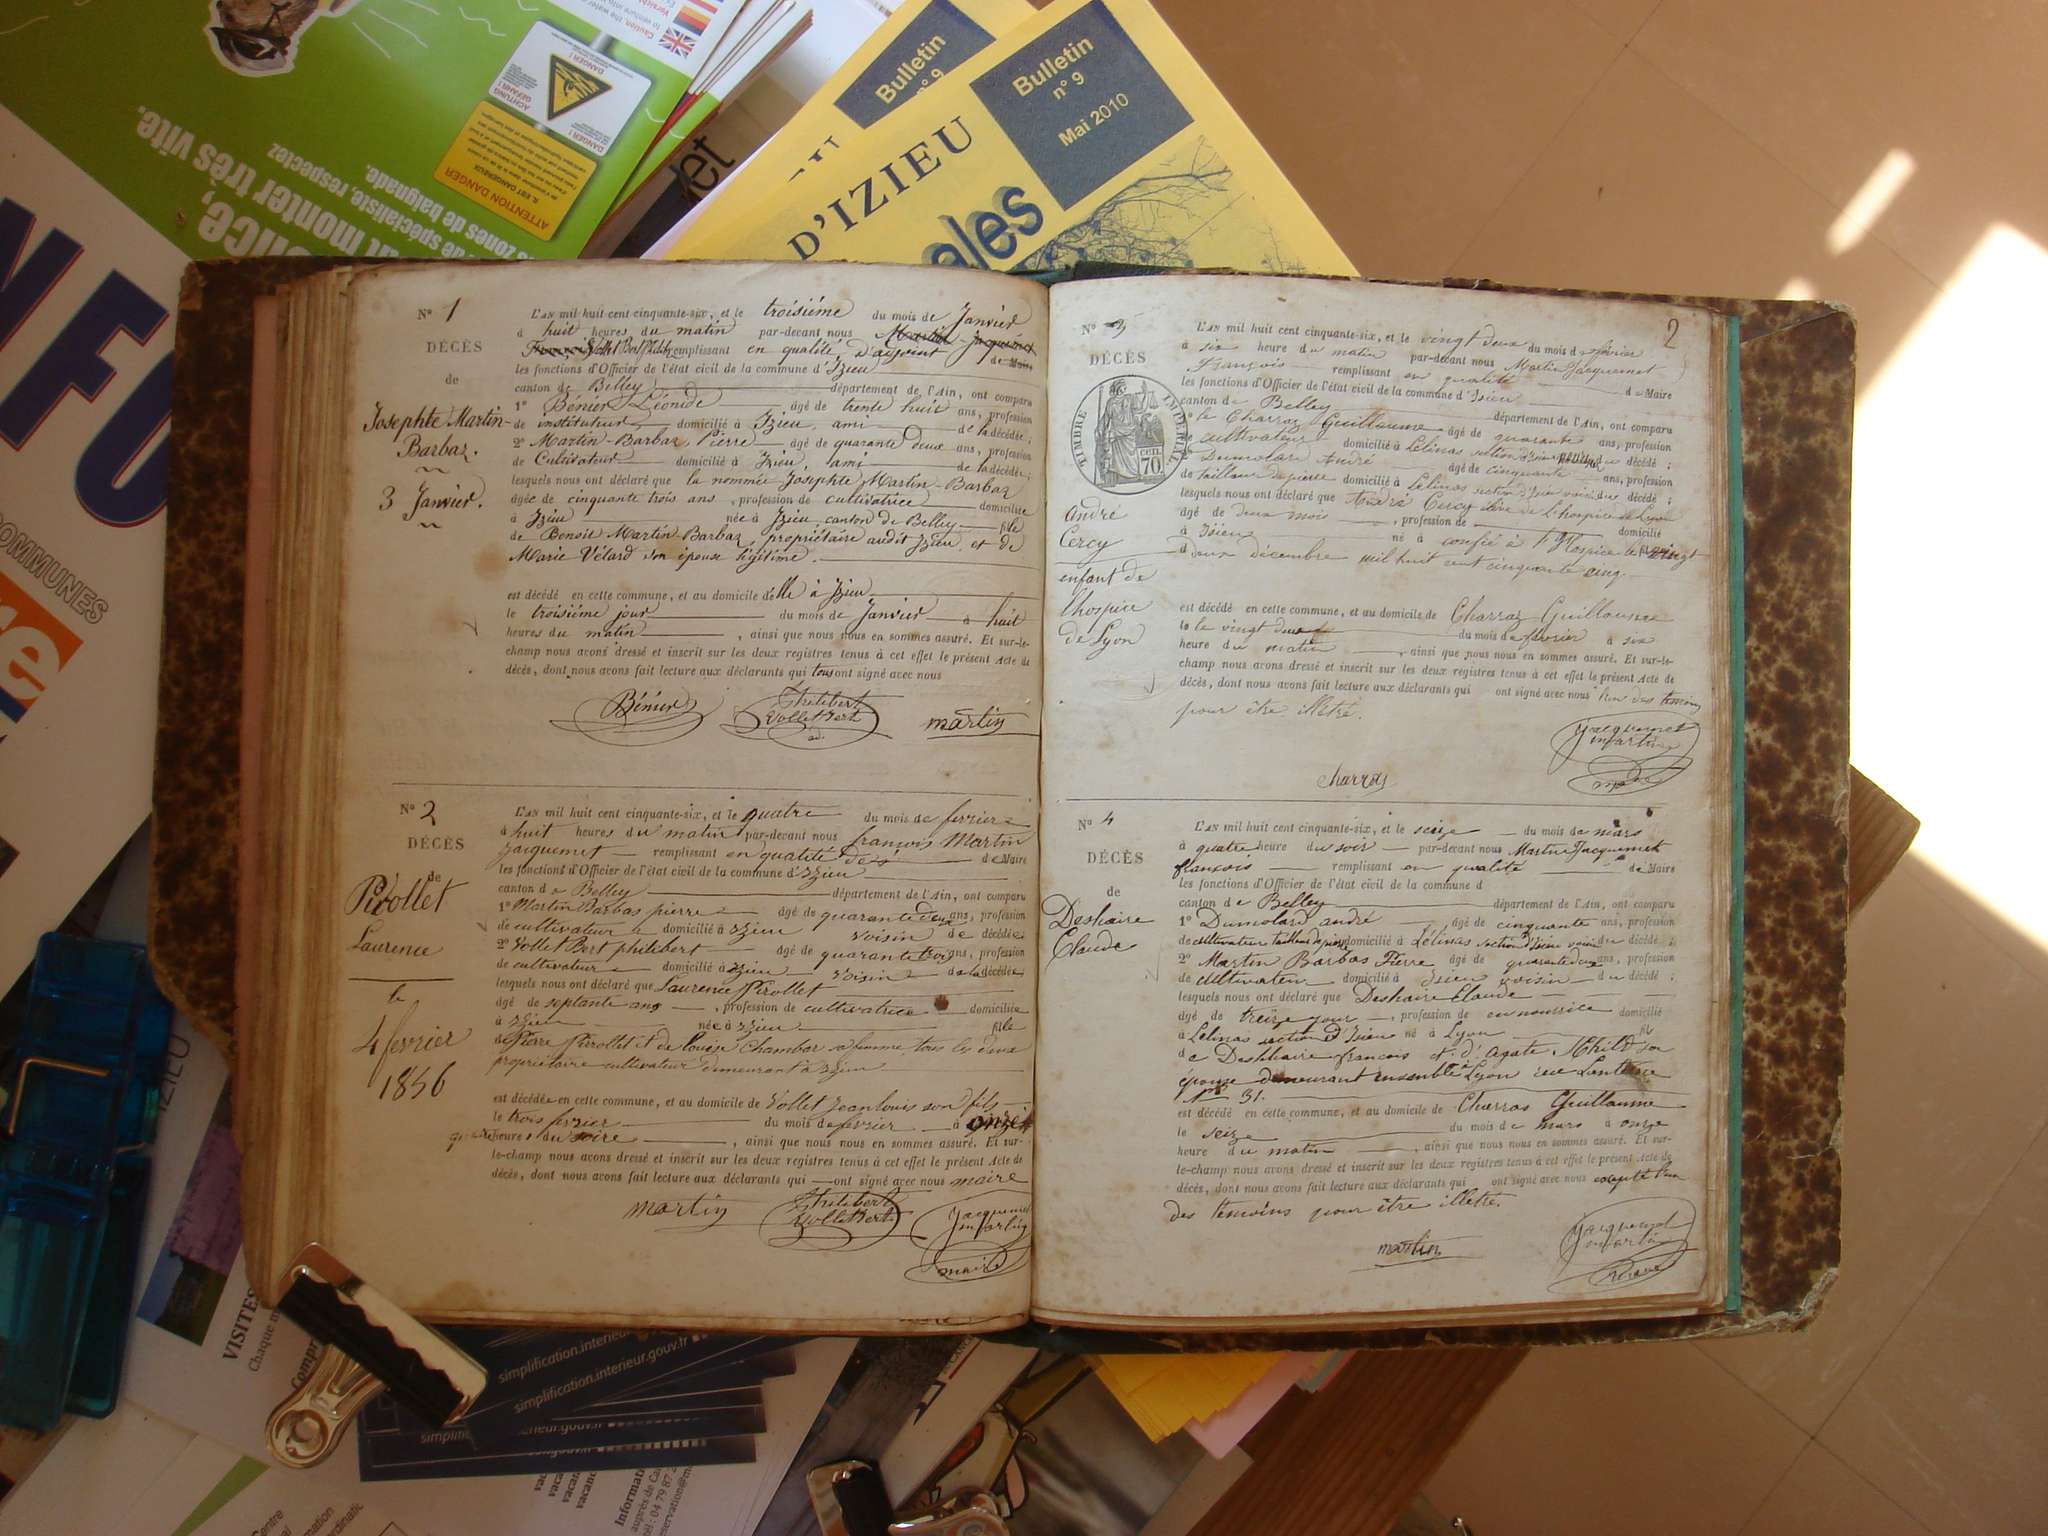 Bulletin
n° 9
Bulletin
n° 9
Mai 2010
D'IZIEU
ales
Caution, the water
to venture into
ATTENTION DANGER
IL EST DANGEREUX
DANGER !
ACHTUNG
GEFAHR !
DANGER !
nt monter très vite.
de spécialiste, respectez
s zones de baignade.
NFO
COMMUNES
re
IZIEU
VISITES
Chaque
Compr
simplification.interieur.gouv.fr
simplification.interieur.gouv.fr
Informat
auprès de
tél : 04 79 87 2
Centre
N° 1
DÉCÈS
de
Josephte Martin-
Barbaz.
3 Janvier.
L'AN mil huit cent cinquante-six, et le troisième du mois de Janvier
à huit heures du matin par-devant nous Martin Jacquemet
François Vollet Bert Philib. remplissant en qualité d'adjoint de Maire
les fonctions d'Officier de l'état civil de la commune d'Izieu
canton de Belley département de l'Ain, ont comparu
1° Bénier Léonide âgé de trente huit ans, profession
de instituteur domicilié à Izieu, ami de la décédée ;
2° Martin-Barbaz Pierre âgé de quarante deux ans, profession
de Cultivateur domicilié à Izieu, ami de la décédée ;
lesquels nous ont déclaré que la nommée Josephte Martin-Barbaz
âgée de cinquante trois ans, profession de cultivatrice domiciliée
à Izieu née à Izieu, canton de Belley fille
de Benoit Martin-Barbaz, propriétaire audit Izieu, et de
Marie Vélard son épouse légitime.
est décédé en cette commune, et au domicile d'elle à Izieu
le troisième jour du mois de Janvier à huit
heures du matin, ainsi que nous nous en sommes assuré. Et sur-le-
champ nous avons dressé et inscrit sur les deux registres tenus à cet effet le présent Acte de
décès, dont nous avons fait lecture aux déclarants qui tous ont signé avec nous
Bénier Philibert Vollet Bert ad. martin
N° 2
DÉCÈS
de
Pirollet
Laurence
le
4 fevrier
1856
L'AN mil huit cent cinquante-six, et le quatre du mois de fevrier
à huit heures du matin par-devant nous françois Martin
Jacquemet remplissant en qualité de de Maire
les fonctions d'Officier de l'état civil de la commune d'izieu
canton de Belley département de l'Ain, ont comparu
1° Martin Barbas pierre âgé de quarante deux ans, profession
de cultivateur domicilié à izieu voisin de décédée ;
2° Vollet Bert philibert âgé de quarante trois ans, profession
de cultivateur domicilié à izieu voisin de la décédée ;
lesquels nous ont déclaré que Laurence Pirollet
âgé de septante ans, profession de cultivatrice domiciliée
à izieu née à izieu fille
de Pierre Pirollet et de Louise Chambar sa femme tous les deux
propriétaire cultivateur demeurant à izieu
est décédée en cette commune, et au domicile de Vollet Jean louis son fils
le trois fevrier du mois de fevrier à onze
heures du soire, ainsi que nous nous en sommes assuré. Et sur-
le-champ nous avons dressé et inscrit sur les deux registres tenus à cet effet le présent Acte de
décès, dont nous avons fait lecture aux déclarants qui ont signé avec nous maire
martin Philibert Vollet Bert Jacquemet martin maire
2
N° 3
DÉCÈS
TIMBRE IMPÉRIAL
70 CENT.
André
Cercy
enfant de
l'hospice
de Lyon
L'AN mil huit cent cinquante-six, et le vingt deux du mois de fevrier
à six heure du matin par-devant nous Martin Jacquemet
François remplissant en qualité de Maire
les fonctions d'Officier de l'état civil de la commune d'Izieu
canton de Belley département de l'Ain, ont comparu
1° le Charraz Guillaume âgé de quarante ans, profession
cultivateur domicilié à Lélinas section d'izieu du décédé ;
Dumolard André âgé de cinquante ans, profession
de tailleur de pierre domicilié à Lélinas section d'Izieu voisin du décédé ;
lesquels nous ont déclaré que André Cercy de l'hospice de Lyon
âgé de deux mois, profession de domicilié
à Izieu né à confié à l'Hospice le vingt
deux décembre mil huit cent cinquante cinq.
est décédé en cette commune, et au domicile de Charraz Guillaume
le vingt deux du mois de fevrier à six
heure du matin, ainsi que nous nous en sommes assuré. Et sur-le-
champ nous avons dressé et inscrit sur les deux registres tenus à cet effet le présent Acte de
décès, dont nous avons fait lecture aux déclarants qui ont signé avec nous l'un des temoins
pour être illétré.
Jacquemet martin
charras
N° 4
DÉCÈS
de
Deshaire
Claude
L'AN mil huit cent cinquante-six, et le seize du mois de mars
à quatre heure du soir par-devant nous Martin Jacquemet
françois remplissant en qualité de Maire
les fonctions d'Officier de l'état civil de la commune d
canton de Belley département de l'Ain, ont comparu
1° Dumolard andré âgé de cinquante ans, profession
de cultivateur tailleur de pierre domicilié à Lélinas section d'Izieu voisin du décédé ;
2° Martin Barbas Pierre âgé de quarante deux ans, profession
de cultivateur domicilié à Izieu voisin du décédé ;
lesquels nous ont déclaré que Deshaire Claude
âgé de treize jour, profession de en nourrice domicilié
à Lélinas section d'Izieu né à Lyon fil
de Deshaire francois et d'agate son
épouse demeurant ensemble à Lyon rue Lanterne
N° 31.
est décédé en cette commune, et au domicile de Charras Guillaume
le seize du mois de mars à onze
heure du matin, ainsi que nous nous en sommes assuré. Et sur-
le-champ nous avons dressé et inscrit sur les deux registres tenus à cet effet le présent Acte de
décès, dont nous avons fait lecture aux déclarants qui ont signé avec nous excepté l'un
des témoins pour être illettré.
martin Jacquemet martin